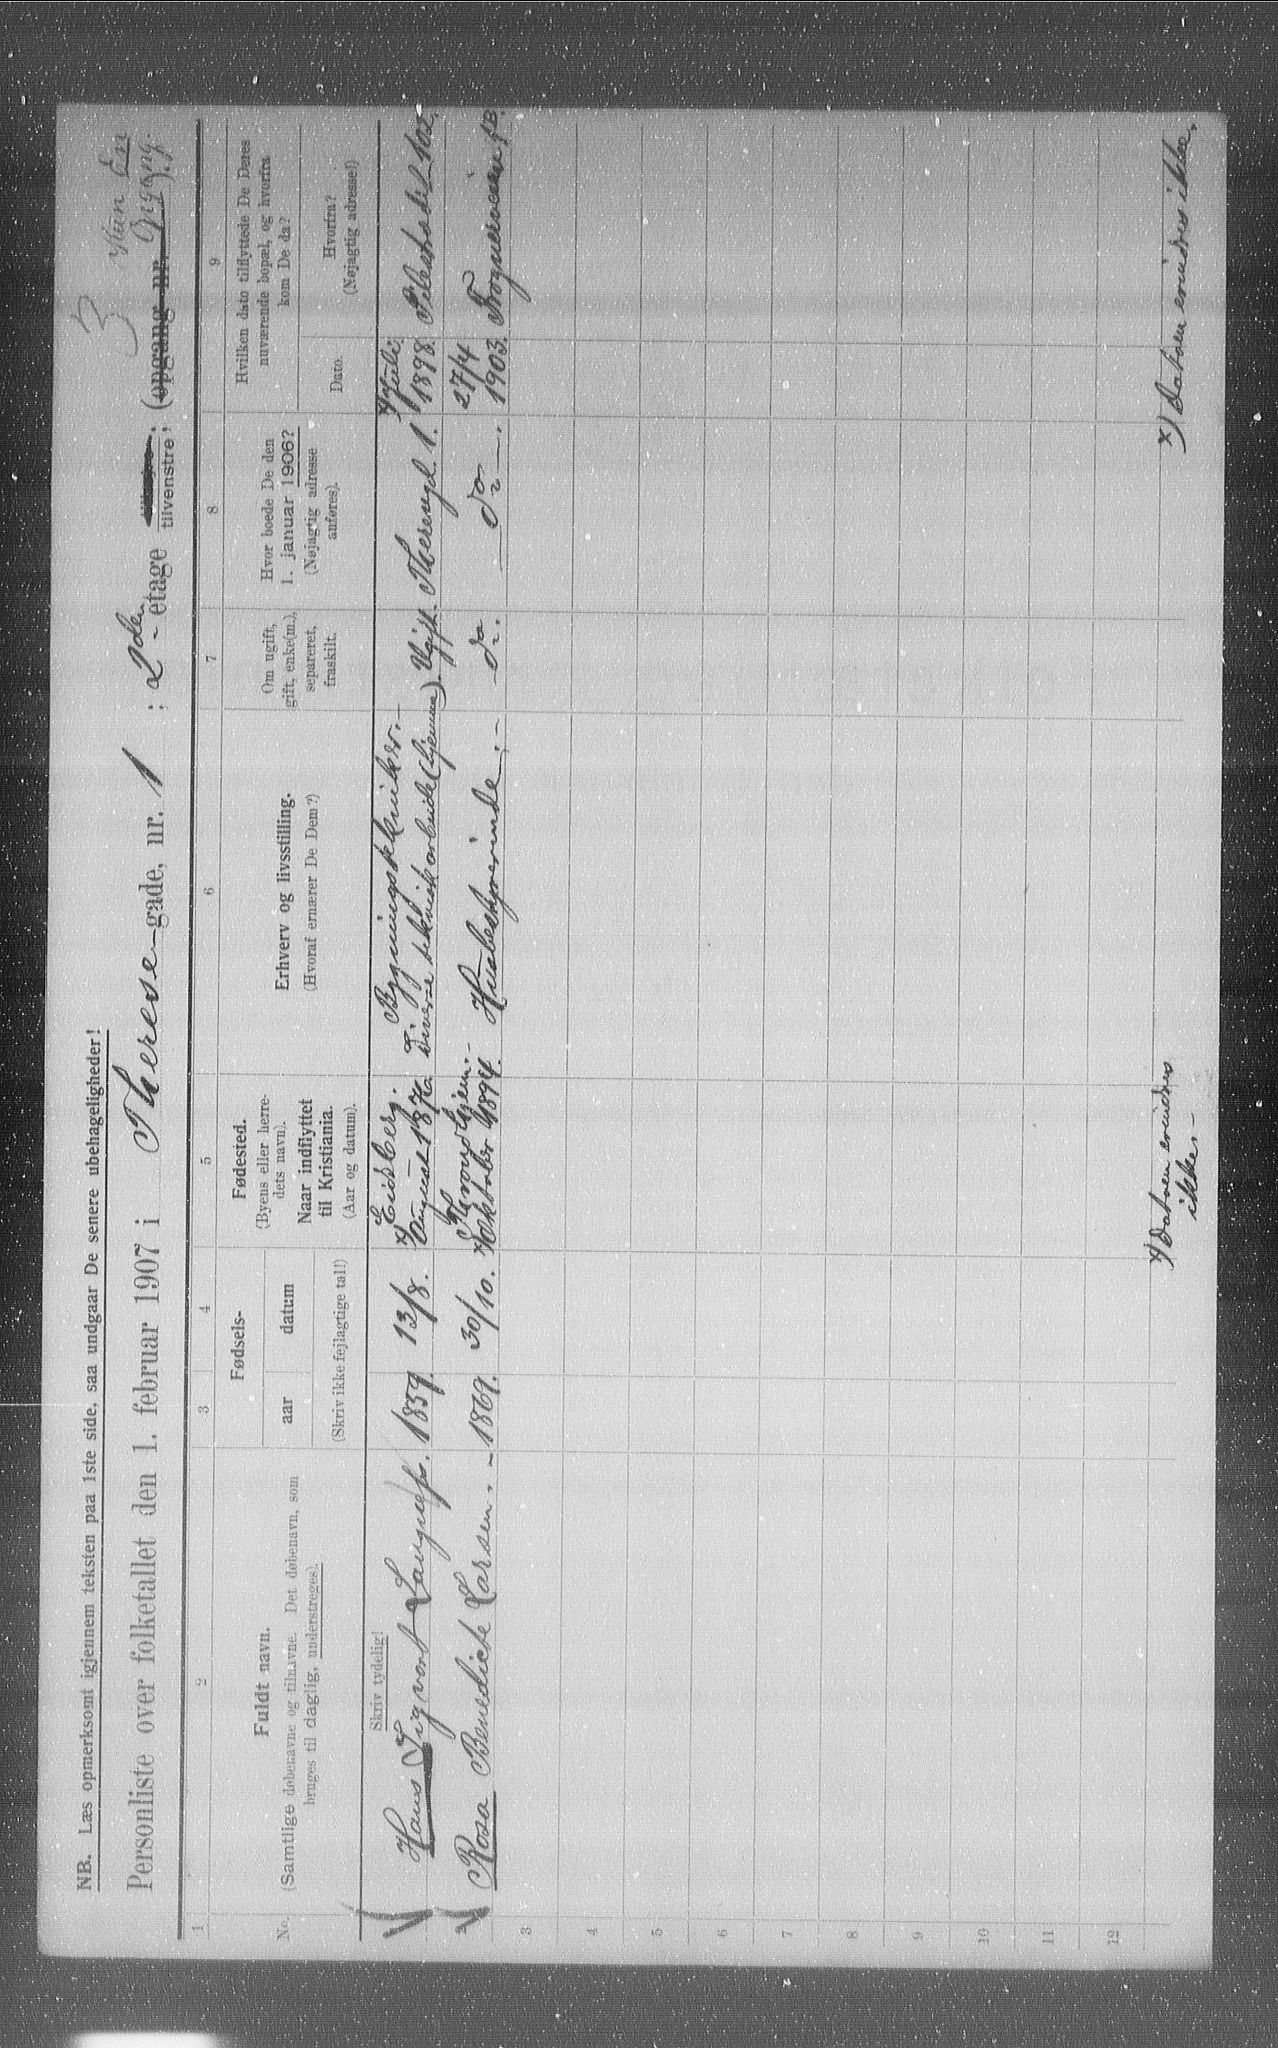 NB. Læs opmerksomt igjennem teksten paa 1ste side, saa undgaar De senere ubehageligheder!
3 Kun En
Personliste over folketallet den 1. februar 1907 i Therese-gade, nr. 1 ; 2den etage tilvenstre; (opgang nr. Opgang).
1 2 3 4 5 6 7 8 9
Nr.
Fuldt navn.
(Samtlige døbenavne og tilnavne. Det døbenavn, som
bruges til daglig, understreges).
Skriv tydelig!
Fødsels-
aar datum
(Skriv ikke fejlagtige tal!)
Fødested.
(Byens eller herre-
dets navn).
Naar indflyttet
til Kristiania.
(Aar og datum).
Erhverv og livsstilling.
(Hvoraf ernærer De Dem?)
Om ugift,
gift, enke(m.),
separeret,
fraskilt.
Hvor boede De den
1. januar 1906?
(Nøjagtig adresse
anføres).
Hvilken dato tilflyttede De Deres
nuværende bopæl, og hvorfra
kom De da?
Dato.
Hvorfra?
(Nøjagtig adresse!)
Hans Sigvart 1859. 13/8.
x) Eidsberg.
August 187
Bygningstekniker.-
Diverse teknisk arbeide (hjemme).
Ugift. Theresegd. 1.
x) Juli
1898.
Pilestrædet 102.
2 Rosa Benedicte Larsen. - 1869. 30/10.
Throndhjem.-
x) Oktober 1894.
Husbestyrerinde.-
do. - do -.
27/4
1903.
Frognerveien
3
4
5
6
7
8
9
10
11
12
x) Datoen erindres
ikke.-
x) Datoen erindres ikke.